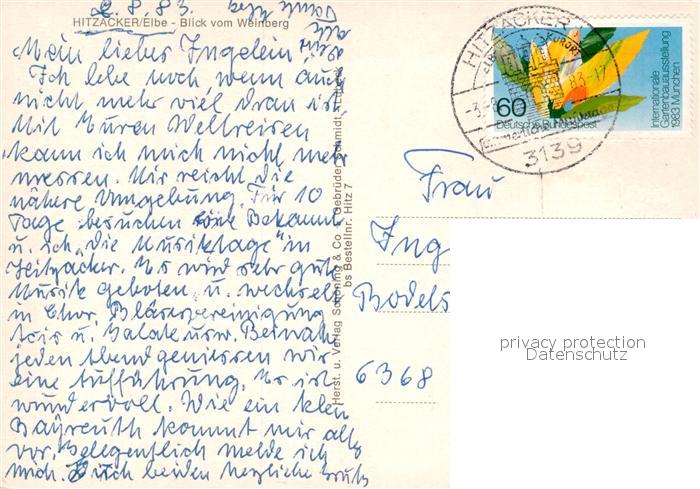 2.8.83.
HITZACKER/Elbe - Blick vom Weinberg
Mein liebes Ingelein
Ich lebe noch wenn auch
nicht mehr viel dran ist
Mit Euren Weltreisen
kann ich mich nicht mehr
messen. Mir reicht die
nähere Umgebung. Für 10
Tage besuchen eine Bekannte
u. ich "die Musiktage" in
Hitzacker. Es wird sehr gute
Musik geboten u. wechselt
in Chor, Bläservereinigung
Trio u. Solo usw. Beinah
jeden Abend geniessen wir
eine Aufführung. Es ist
wundervoll. Wie ein klein
Bayreuth kommt mir alles
vor. Gelegentlich melde ich
mich. Euch beiden herzliche Grüße
Herst. u. Verlag Schöning & Co. Gebrüder Schmidt
bs Bestellnr. Hitz 7
HITZACKER
3139
60
Deutsche Bundespost
Internationale
Gartenbauausstellung
1983 München
Frau
Ing
Bodels
6368
privacy protection
Datenschutz